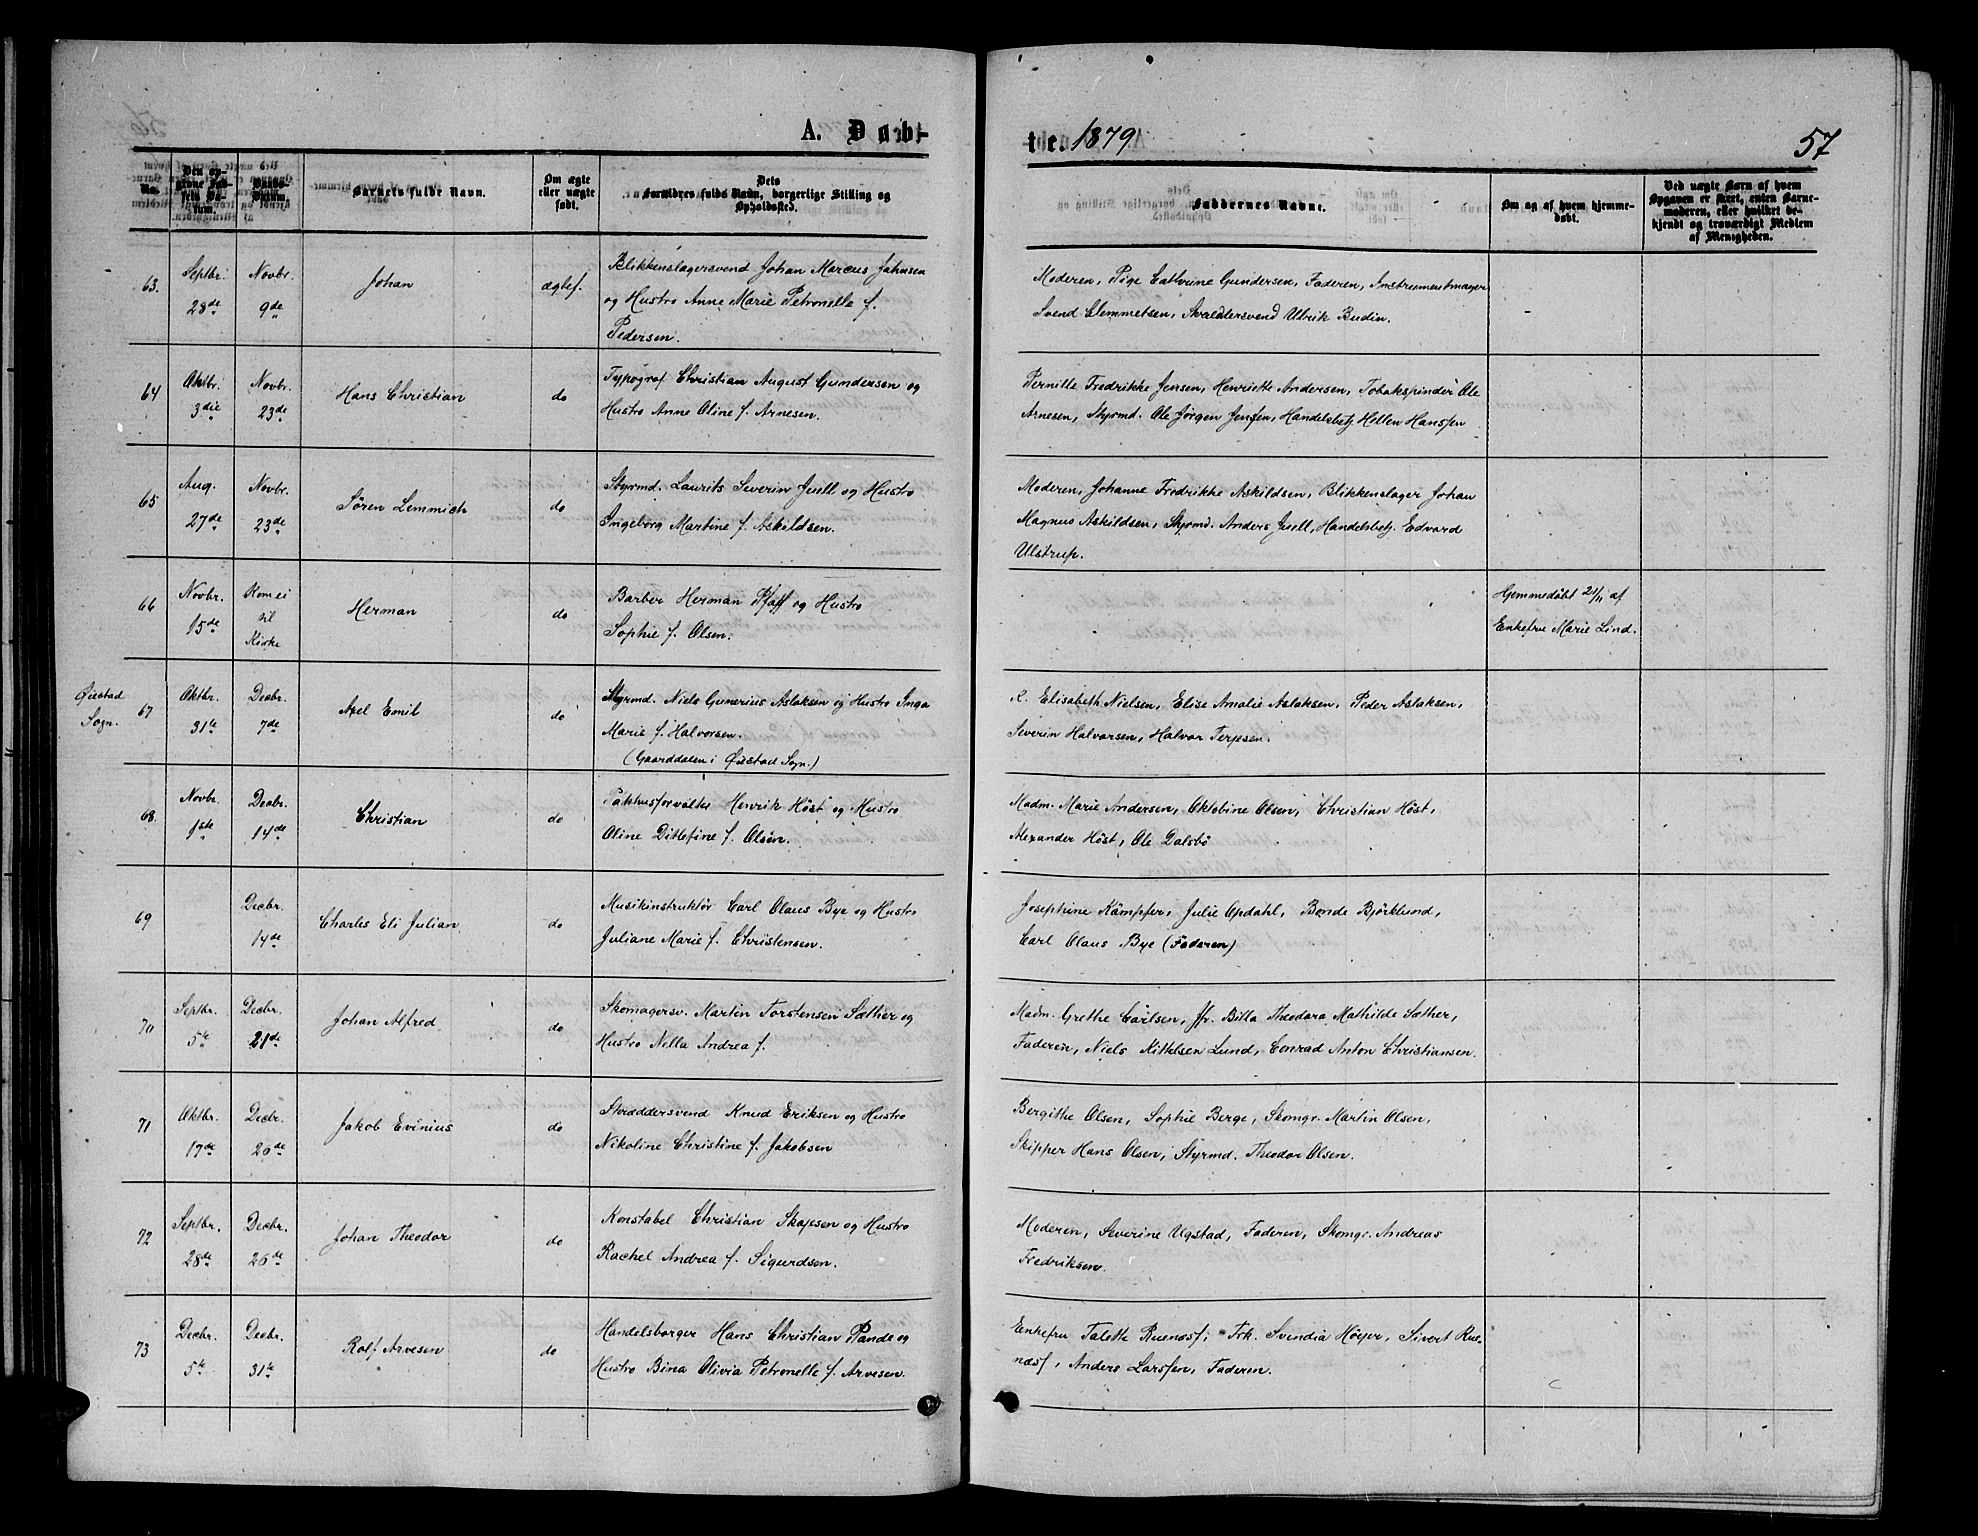 A. Døb-
te. 1879
57
No. Den opgivne Fødsels Datum. Daabs-Datum. Barnets fulde Navn. Om ægte eller uægte født. Dets Forældres fulde Navn, borgerlige Stilling og Opholdssted. Faddernes Navne. Om og af hvem hjemmedøbt. Ved uægte Børn af hvem Opgaven er skeet, enten Barnemoderen, eller hvilket bekjendt og troværdigt Medlem af Menigheden.
63. Septbr. 28de Novbr. 9de Johan ægtef.
Blikkenslagersvend Johan Marcus Jahnsen
og Hustro Anne Marie Petronelle f.
Pedersen.
Moderen, Pige Cathrine Gundersen, Faderen, Instrumentmager
Svend Clemmetsen, Svend Ulrik Budin.
64 Oktbr. 3die Novbr. 23de Hans Christian do
Typograf Christian August Gundersen og
Hustro Anne Oline f. Arnesen.
Pernille Fredrikke Jensen, Henriette Andersen, Tobakspinder Ole
Arnesen, Styrmd. Ole Jørgen Jensen, Handelsbetj. Hellen Hanssen
65 Aug. 27de Novbr. 23de Søren Lemmich do
Styrmd. Laurits Severin Juell og Hustro
Ingeborg Martine f. Askildsen.
Moderen, Johanne Fredrikke Askildsen, Blikkenslager Johan
Magnus Askildsen, Styrmd. Anders Juell, Handelsbetj. Edvard
Ulstrup.
66 Novbr. 15de Kom ei til Kirke Herman do
Barber Herman Pfaff og Hustro
Sophie f. Olsen.
Hjemmedøbt 21/11 af
Enkefru Marie Lind.
Øiestad
Sogn.
67 Oktbr. 31te Decbr. 7de Axel Emil do
Styrmd. Niels Gunerius Aslaksen og Hustro Inga
Marie f. Halvorsen.
(Gaarddalen i Øiestad Sogn.)
Elisabeth Nielsen, Elise Amalie Aslaksen, Peder Aslaksen,
Severin Halvorsen, Halvor Terjesen.
68. Novbr. 1ste Decbr. 14de Christian do
Pakhusforvalter Henrik Höst og Hustro
Oline Ditlefine f. Olsen.
Madm. Marie Andersen, Oktobine Olsen, Christian Höst,
Alexander Höst, Ole Dalsbö
69 Decbr. 14de Charles Eli Julian do
Musikinstruktör Carl Olaus Bye og Hustro
Juliane Marie f. Christensen.
Josephine Kämpfer, Julie Opdahl, Bonde Björklund,
Carl Olaus Bye (Faderen)
70 Septbr. 5te Decbr. 21de Johan Alfred do
Skomagersv. Martin Torstensen Sæther og
Hustro Nella Andrea f.
Madm. Grethe Carlsen, Jfr. Billa Theodora Mathilde Sæther,
Faderen, Niels Kittelsen Lund, Conrad Anton Christiansen.
71 Oktbr. 17de Decbr. 26de Jakob Evinius do
Skræddersvend Knud Eriksen og Hustro
Nikoline Christine f. Jakobsen
Bergithe Olsen, Sophie Berge, Skomgr. Martin Olsen,
Skipper Hans Olsen, Styrmd. Theodor Olsen.
72 Septbr. 28de Decbr. 26de Johan Theodor do
Konstabel Christian Skajesen og Hustro
Rachel Andrea f. Sigurdsen.
Moderen, Severine Ugstad, Faderen, Skomgr. Andreas
Fredriksen.
73 Decbr. 5te Decbr. 31te Rolf Arvesen do
Handelsborger Hans Christian Pande og
Hustro Bina Olivia Petronelle f. Arvesen.
Enkefru Talette Ruenæs, Frk. Svindia Höyer, Sivert Rue-
næs, Anders Larssen, Faderen.